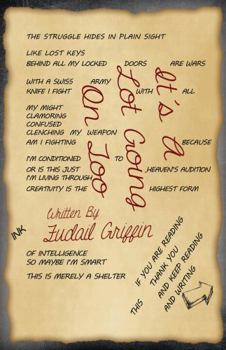 THE STRUGGLE HIDES IN PLAIN SIGHT
LIKE LOST KEYS
BEHIND ALL MY LOCKED DOORS ARE WARS
WITH A SWISS ARMY
KNIFE I FIGHT WITH ALL
MY MIGHT
CLAMORING
CONFUSED
CLENCHING MY WEAPON
AM I FIGHTING BECAUSE
I'M CONDITIONED TO
OR IS THIS JUST HEAVEN'S AUDITION
I'M LIVING THROUGH
CREATIVITY IS THE HIGHEST FORM
It's A
Lot Going
On Too
Written By
Fudail Griffin
INK
OF INTELLIGENCE
SO MAYBE I'M SMART
THIS IS MERELY A SHELTER
IF YOU ARE READING
THIS THANK YOU
AND KEEP READING
AND WRITING